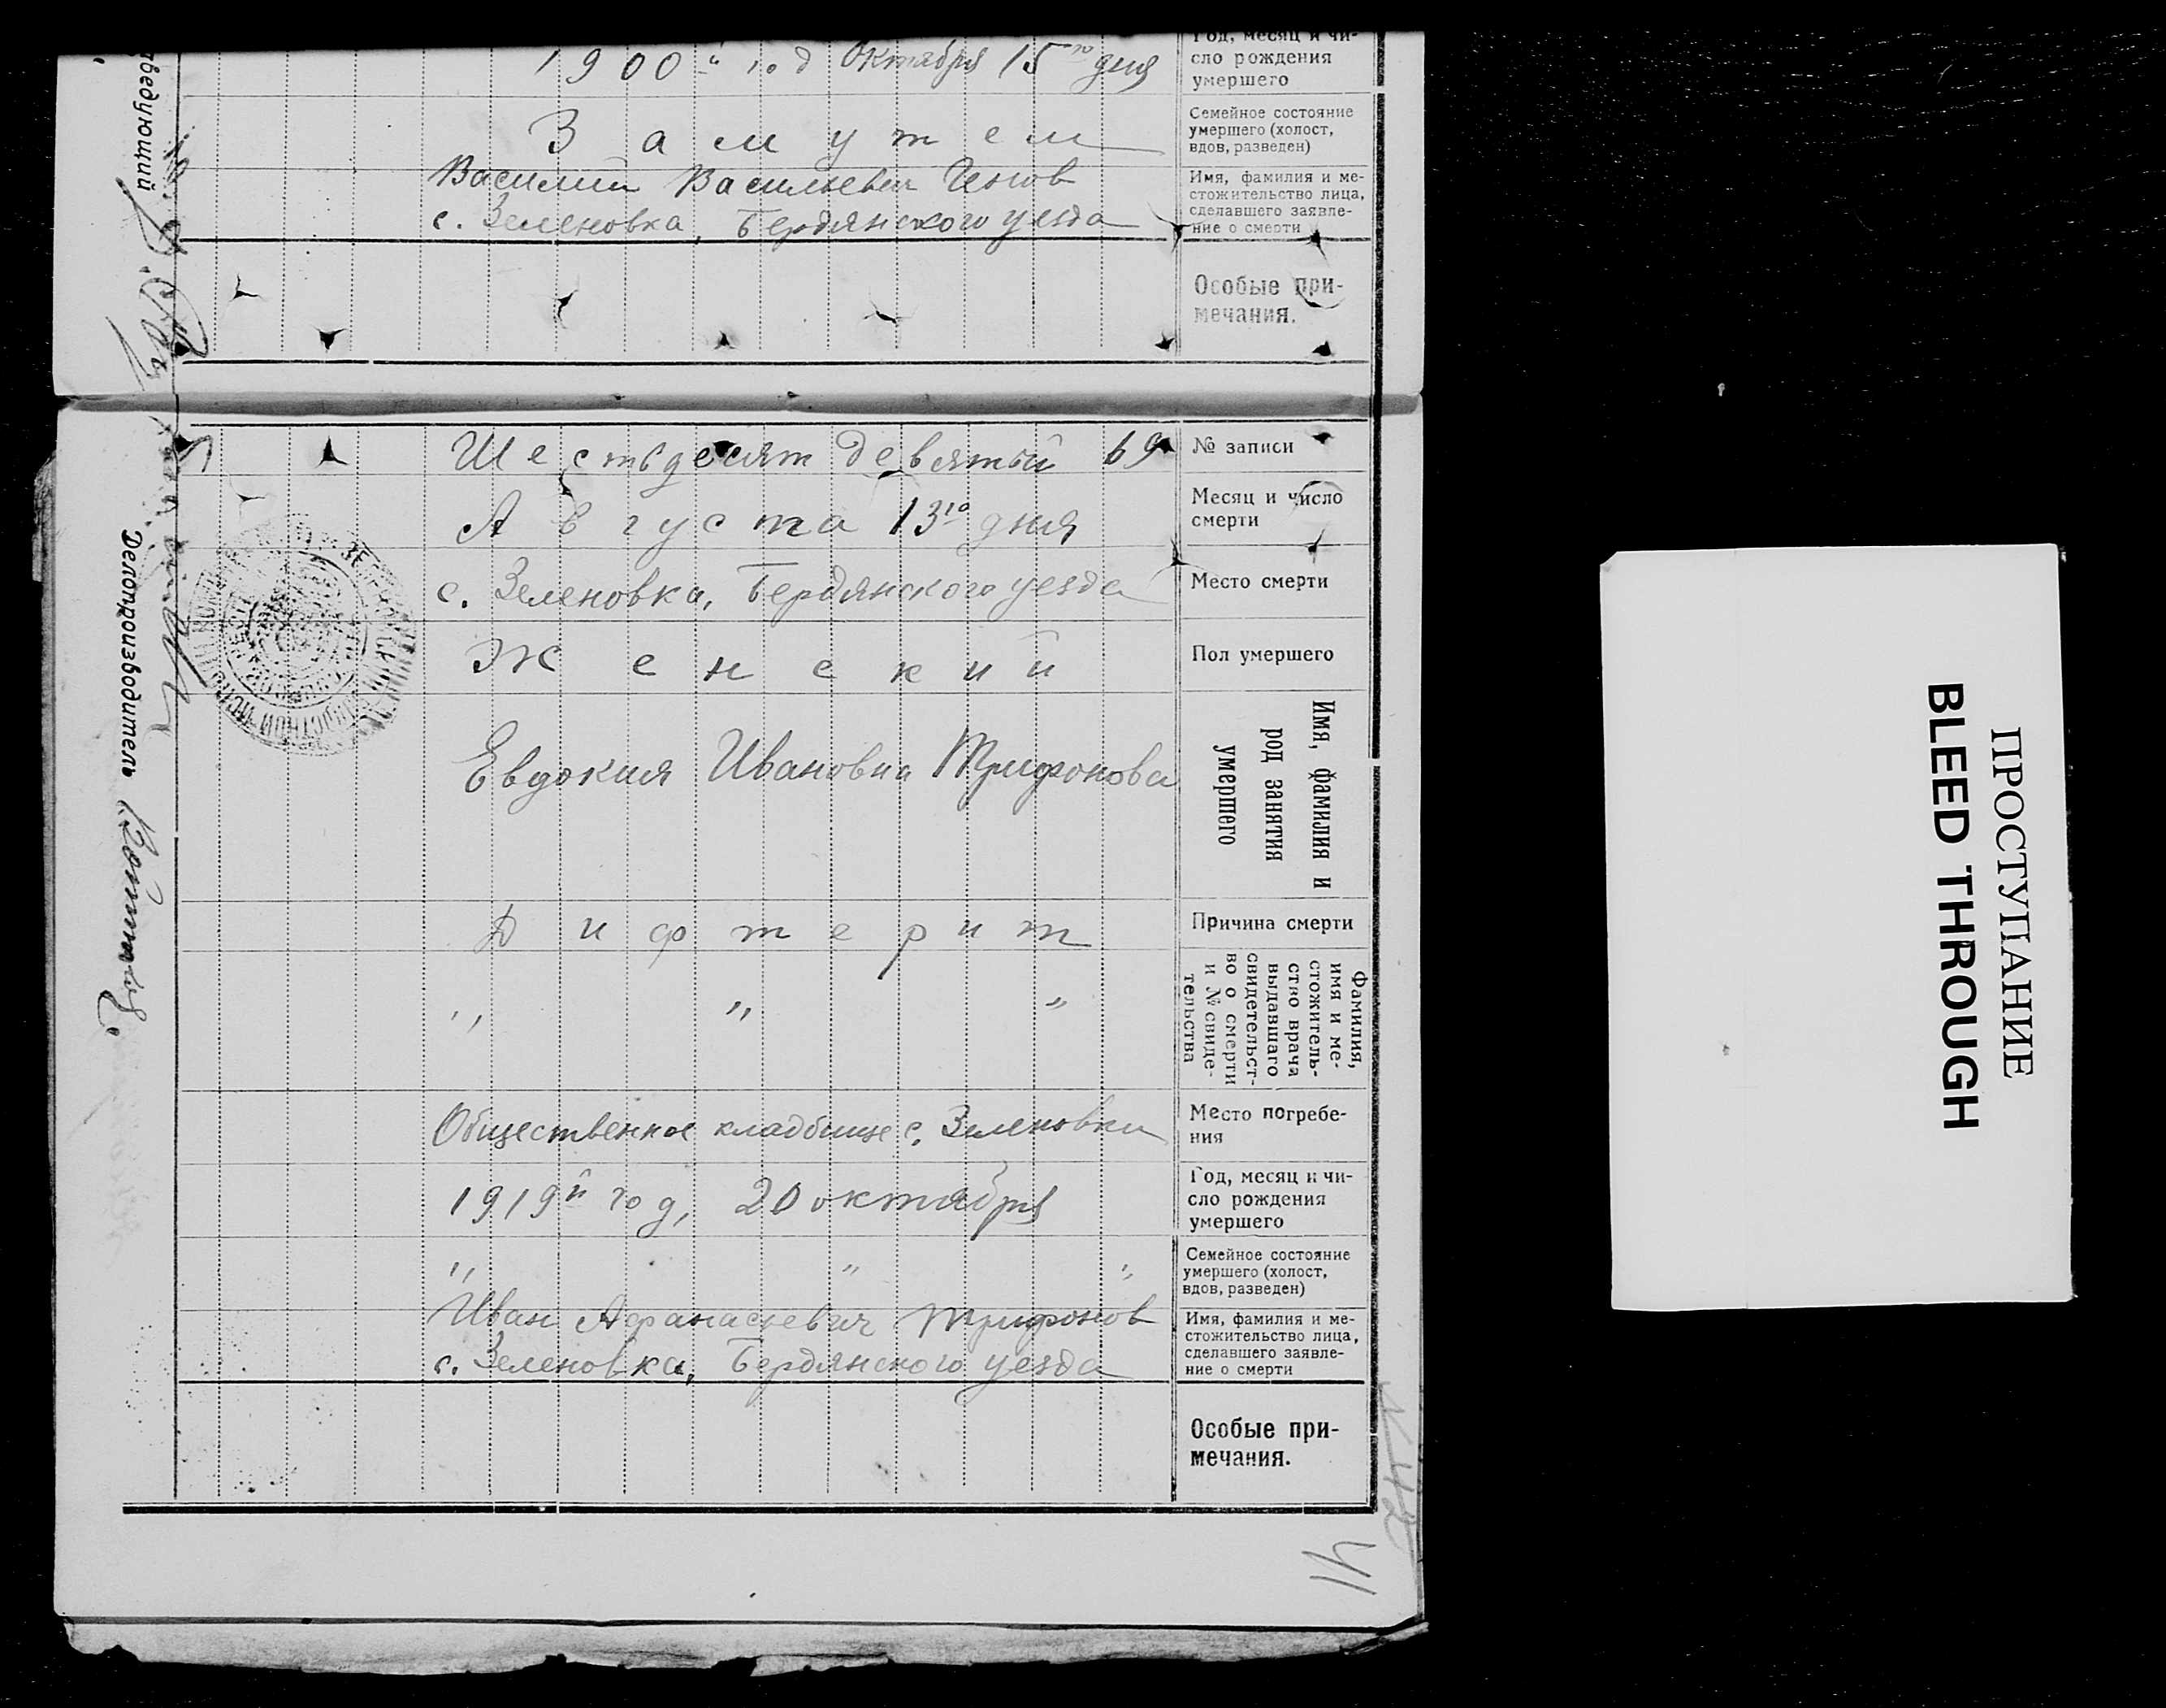 1900й год Октября 15го дня
Год, месяц и чи-
сло рождения
умершего
Замужем
Семейное состояние
умершего (холост,
вдов, разведен)
Василий Васильевич
с. Зеленовка, Бердянского уезда
Имя, фамилия и ме-
стожительство лица,
сделавшего заявле-
ние о смерти
Особые при-
мечания.
Шестьдесят девятый 69
№ записи
Августа 13го дня
Месяц и число
смерти
с. Зеленовка, Бердянского уезда
Место смерти
Женский
Пол умершего
Евдокия Ивановна Трифонова
Имя, фамилия и
род занятия
умершего
Дифтерит
Причина смерти
" " "
Фамилия,
имя и ме-
стожитель-
ство врача
выдавшаго
свидетельст-
во о смерти
и № свиде-
тельства
Общественное кладбище с. Зеленовки
Место погребе-
ния
1919й год, 20 октября
Год, месяц и чи-
сло рождения
умершего
" " "
Семейное состояние
умершего (холост,
вдов, разведен)
Иван Афанасьевич Трифонов
с. Зеленовка, Бердянского уезда
Имя, фамилия и ме-
стожительство лица,
сделавшего заявле-
ние о смерти
Особые при-
мечания.
Делопроизводитель
41
ПРОСТУПАНИЕ
BLEED THROUGH